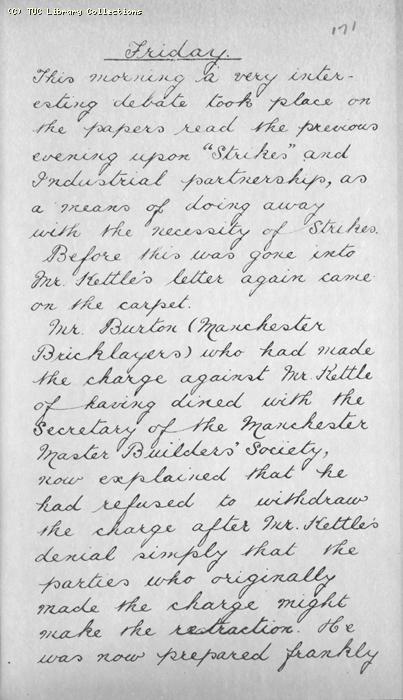 (C) TUC Library Collections
171
Friday.
This morning a very inter-
esting debate took place on
the papers read the previous
evening upon "Strikes" and
Industrial partnership, as
a means of doing away
with the necessity of Strikes.
Before this was gone into
Mr. Kettle's letter again came
on the carpet.
Mr. Burton (Manchester
Bricklayers) who had made
the charge against Mr Kettle
of having dined with the
Secretary of the Manchester
Master Builders' Society,
now explained that he
had refused to withdraw
the charge after Mr. Kettle's
denial simply that the
parties who originally
made the charge might
make the retraction. He
was now prepared frankly